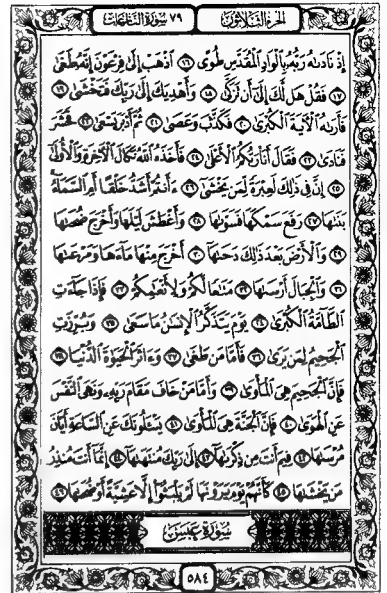 الجزء الثلاثون ٧٩ سورة النازعات
إِذْ نَادَىٰهُ رَبُّهُۥ بِٱلْوَادِ ٱلْمُقَدَّسِ طُوًى ١٦ ٱذْهَبْ إِلَىٰ فِرْعَوْنَ إِنَّهُۥ طَغَىٰ
١٧ فَقُلْ هَل لَّكَ إِلَىٰٓ أَن تَزَكَّىٰ ١٨ وَأَهْدِيَكَ إِلَىٰ رَبِّكَ فَتَخْشَىٰ ١٩
فَأَرَىٰهُ ٱلْءَايَةَ ٱلْكُبْرَىٰ ٢٠ فَكَذَّبَ وَعَصَىٰ ٢١ ثُمَّ أَدْبَرَ يَسْعَىٰ ٢٢ فَحَشَرَ
فَنَادَىٰ ٢٣ فَقَالَ أَنَا۠ رَبُّكُمُ ٱلْأَعْلَىٰ ٢٤ فَأَخَذَهُ ٱللَّهُ نَكَالَ ٱلْءَاخِرَةِ وَٱلْأُولَىٰٓ
٢٥ إِنَّ فِى ذَٰلِكَ لَعِبْرَةً لِّمَن يَخْشَىٰٓ ٢٦ ءَأَنتُمْ أَشَدُّ خَلْقًا أَمِ ٱلسَّمَآءُ ۚ
بَنَىٰهَا ٢٧ رَفَعَ سَمْكَهَا فَسَوَّىٰهَا ٢٨ وَأَغْطَشَ لَيْلَهَا وَأَخْرَجَ ضُحَىٰهَا
٢٩ وَٱلْأَرْضَ بَعْدَ ذَٰلِكَ دَحَىٰهَآ ٣٠ أَخْرَجَ مِنْهَا مَآءَهَا وَمَرْعَىٰهَا
٣١ وَٱلْجِبَالَ أَرْسَىٰهَا ٣٢ مَتَٰعًا لَّكُمْ وَلِأَنْعَٰمِكُمْ ٣٣ فَإِذَا جَآءَتِ
ٱلطَّآمَّةُ ٱلْكُبْرَىٰ ٣٤ يَوْمَ يَتَذَكَّرُ ٱلْإِنسَٰنُ مَا سَعَىٰ ٣٥ وَبُرِّزَتِ
ٱلْجَحِيمُ لِمَن يَرَىٰ ٣٦ فَأَمَّا مَن طَغَىٰ ٣٧ وَءَاثَرَ ٱلْحَيَوٰةَ ٱلدُّنْيَا ٣٨
فَإِنَّ ٱلْجَحِيمَ هِىَ ٱلْمَأْوَىٰ ٣٩ وَأَمَّا مَنْ خَافَ مَقَامَ رَبِّهِۦ وَنَهَى ٱلنَّفْسَ
عَنِ ٱلْهَوَىٰ ٤٠ فَإِنَّ ٱلْجَنَّةَ هِىَ ٱلْمَأْوَىٰ ٤١ يَسْـَٔلُونَكَ عَنِ ٱلسَّاعَةِ أَيَّانَ
مُرْسَىٰهَا ٤٢ فِيمَ أَنتَ مِن ذِكْرَىٰهَآ ٤٣ إِلَىٰ رَبِّكَ مُنتَهَىٰهَآ ٤٤ إِنَّمَآ أَنتَ مُنذِرُ
مَن يَخْشَىٰهَا ٤٥ كَأَنَّهُمْ يَوْمَ يَرَوْنَهَا لَمْ يَلْبَثُوٓا۟ إِلَّا عَشِيَّةً أَوْ ضُحَىٰهَا ٤٦
سورة عبس
٥٨٤